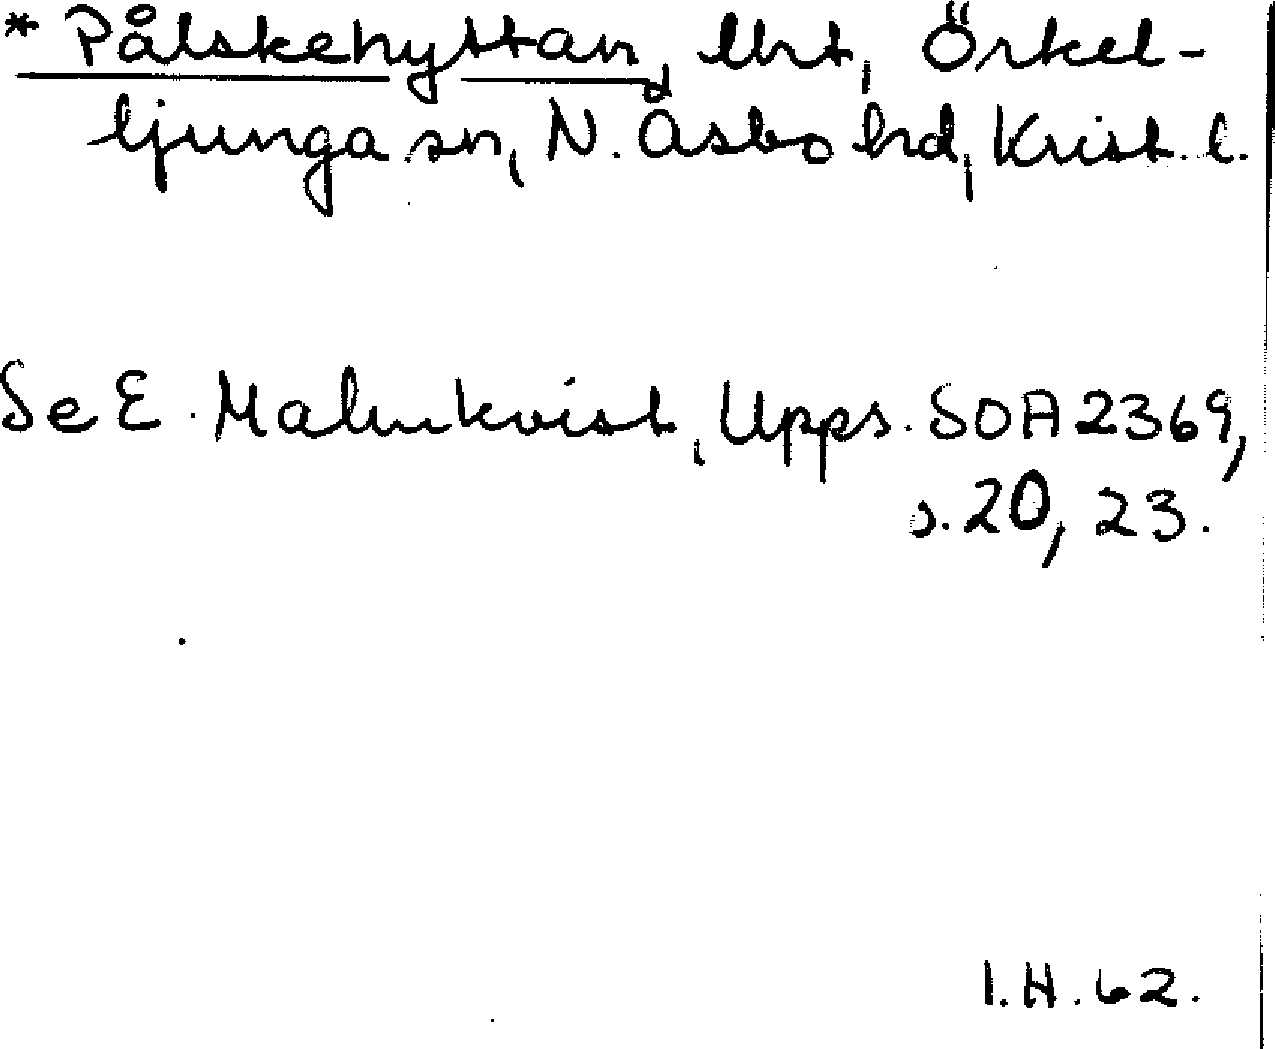 * Pålskehyttan, lht, Örkel-
ljunga sn, N. Åsbo hd, Krist. l.
Se E. Malmkvist, Upps. SOA 2369,
s. 20, 23.
I.H. 62.